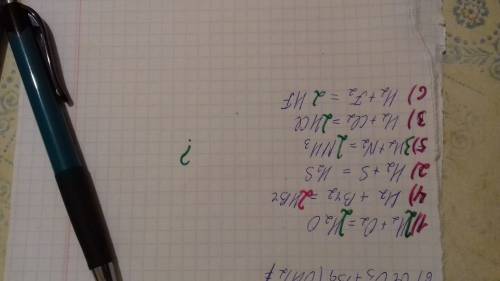 1) 2H₂ + O₂ = 2H₂O
4) H₂ + Br₂ = 2HBr
2) H₂ + S = H₂S
5) 3H₂ + N₂ = 2NH₃
?
3) H₂ + Cl₂ = 2HCl
6) H₂ + F₂ = 2HF